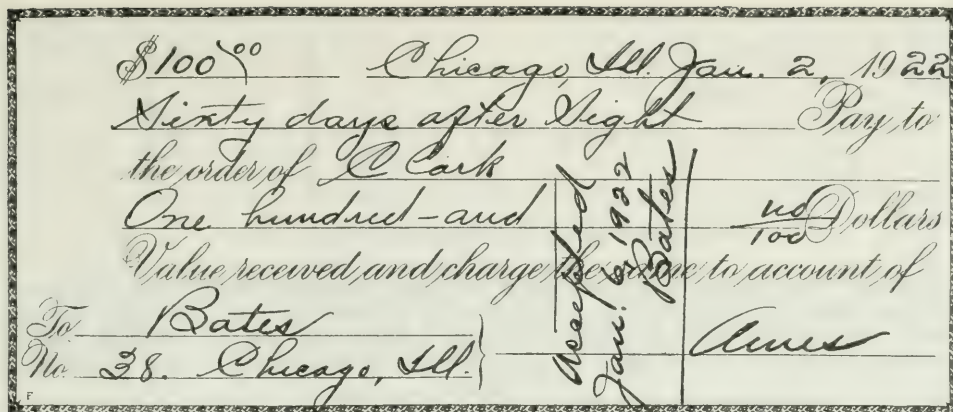 $100 00 Chicago, Ill. Jan. 2, 1922
Sixty days after Sight Pay to
the order of C Cark
One hundred-and no/100 Dollars
Value received and charge the same to account of
To Bates
No. 38. Chicago, Ill.
Ames
Accepted
Jan. 6, 1922
Bates
F